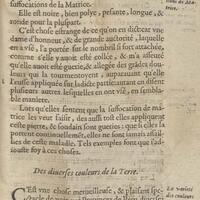 suffocations de la Matrice.
Elle est noire, bien polye, pesante, longue, &
ronde pour la pluspart.
C'est chose estrange de ce qu'on en dict car vne
dame d'honneur, & de grande austorité, laquelle
en a vsé, l'a portée sur le nombril si fort attachée,
comme s'elle y auoit esté collée, & m'a asseuré
qu'elle auoit esté guerie, & allegée des grãds dou-
leurs qui la tourmentoyent, auparauant qu'elle
l'eusse appliquée sur ladicte partie: & en disent
plusieurs autres qui en ont vsé, en sembla-
ble maniere.
Lors qu'elles sentent que la suffocation de ma-
trice les veut saisir, des aussi tost elles appliquerẽt
ceste pierre, & soudain sont gueries: que si elles la
portent continuellement, elles ne sont iamais assail-
lies de ceste maladie. Tels exemples font que i'ad-
iouste foy à ces choses.
Des diuerses couleurs de la Terre.
C'Est vne chose merueilleuse, & plaisant spe-
La varieté
des couleurs